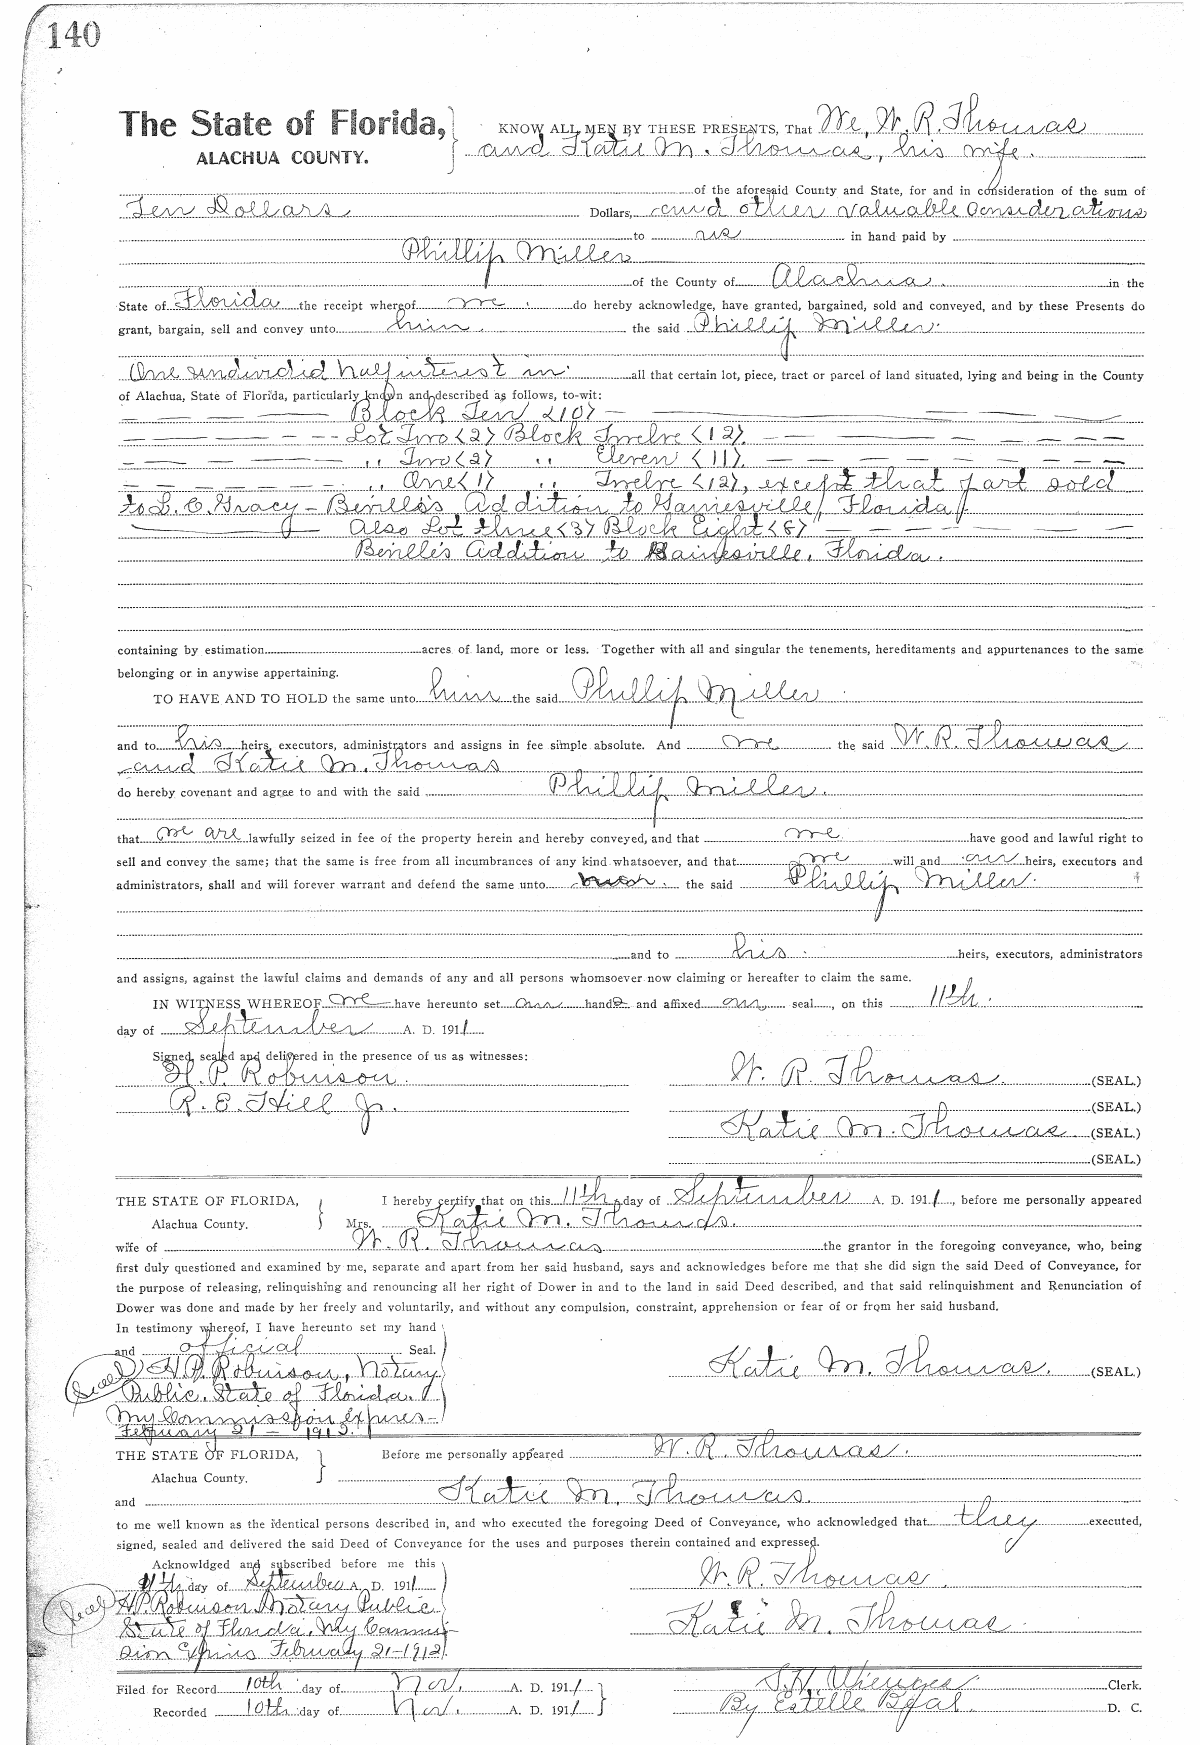 140
The State of Florida, KNOW ALL MEN BY THESE PRESENTS, That We, W. R. Thomas
ALACHUA COUNTY. and Katie M. Thomas, his wife.
of the aforesaid County and State, for and in consideration of the sum of
Ten Dollars Dollars, and other valuable considerations
to us in hand paid by
Phillip Miller
of the County of Alachua in the
State of Florida the receipt whereof we do hereby acknowledge, have granted, bargained, sold and conveyed, and by these Presents do
grant, bargain, sell and convey unto him the said Phillip Miller
One undivided half interest in all that certain lot, piece, tract or parcel of land situated, lying and being in the County
of Alachua, State of Florida, particularly known and described as follows, to-wit:
Block Ten <10>
Lot Two <2> Block Twelve <12>
,, Two <2> ,, Eleven <11>
,, One <1> ,, Twelve <12>, except that part sold
to L. C. Gracy - Beville's Addition to Gainesville, Florida
Also Lot three <3> Block Eight <8>
Beville's Addition to Gainesville, Florida.
containing by estimation acres of land, more or less. Together with all and singular the tenements, hereditaments and appurtenances to the same
belonging or in anywise appertaining.
TO HAVE AND TO HOLD the same unto him the said Phillip Miller
and to his heirs, executors, administrators and assigns in fee simple absolute. And we the said W. R. Thomas
and Katie M. Thomas
do hereby covenant and agree to and with the said Phillip Miller.
that we are lawfully seized in fee of the property herein and hereby conveyed, and that we have good and lawful right to
sell and convey the same; that the same is free from all incumbrances of any kind whatsoever, and that we will and our heirs, executors and
administrators, shall and will forever warrant and defend the same unto the said Phillip Miller.
and to his heirs, executors, administrators
and assigns, against the lawful claims and demands of any and all persons whomsoever now claiming or hereafter to claim the same.
IN WITNESS WHEREOF we have hereunto set our hands and affixed our seal, on this 11th.
day of September A. D. 1911
Signed, sealed and delivered in the presence of us as witnesses:
H. P. Robinson. W. R. Thomas. (SEAL.)
R. E. Hill Jr. (SEAL.)
Katie M. Thomas. (SEAL.)
(SEAL.)
THE STATE OF FLORIDA, I hereby certify that on this 11th day of September A. D. 1911, before me personally appeared
Alachua County. Mrs. Katie M. Thomas.
wife of W. R. Thomas the grantor in the foregoing conveyance, who, being
first duly questioned and examined by me, separate and apart from her said husband, says and acknowledges before me that she did sign the said Deed of Conveyance, for
the purpose of releasing, relinquishing and renouncing all her right of Dower in and to the land in said Deed described, and that said relinquishment and Renunciation of
Dower was done and made by her freely and voluntarily, and without any compulsion, constraint, apprehension or fear of or from her said husband.
In testimony whereof, I have hereunto set my hand
and official Seal.
Seal H. P. Robinson, Notary Katie M. Thomas. (SEAL)
Public. State of Florida.
My Commission expires-
February 21 - 1912.
THE STATE OF FLORIDA, Before me personally appeared W. R. Thomas.
Alachua County.
and Katie M. Thomas.
to me well known as the identical persons described in, and who executed the foregoing Deed of Conveyance, who acknowledged that they executed,
signed, sealed and delivered the said Deed of Conveyance for the uses and purposes therein contained and expressed.
Acknowldged and subscribed before me this
11th day of September A. D. 1911 W. R. Thomas.
Seal H. P. Robinson Notary Public
State of Florida. My Commis- Katie M. Thomas.
sion Expires February 21-1912.
Filed for Record 10th day of Nov. A. D. 1911 S. H. Wienges Clerk.
Recorded 10th day of Nov. A. D. 1911 By Estelle D. C.